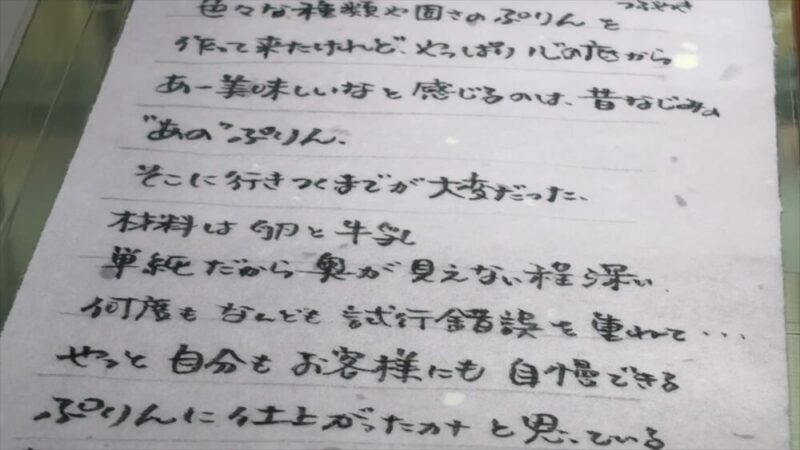 つぶやき
色々な種類や固さのぷりんを
作って来たけれど、やっぱり心の底から
あー美味しいなと感じるのは、昔なじみの
"あの"ぷりん、
そこに行きつくまでが大変だった、
材料は卵と牛乳
単純だから奥が見えない程深い
何度もなんども試行錯誤を重ねて・・・
やっと自分もお客様にも自慢できる
ぷりんに仕上がったカナと思っている